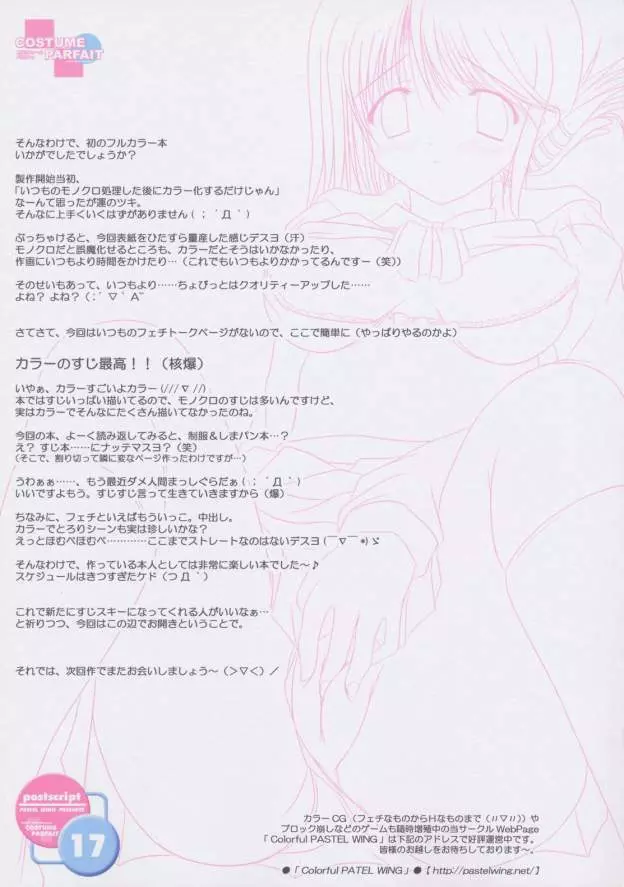 COSTUME
PARFAIT
そんなわけで、初のフルカラー本
いかがでしたでしょうか？
製作開始当初、
「いつものモノクロ処理した後にカラー化するだけじゃん」
なーんて思ったが運のツキ。
そんなに上手くいくはずがありません(；゛Д｀)
ぶっちゃけると、今回表紙をひたすら量産した感じデスヨ（汗）
モノクロだと誤魔化せるところも、カラーだとそうはいかなかったり、
作画にいつもより時間をかけたり…（これでもいつもよりかかってるんですー（笑））
そのせいもあって、いつもより……ちょびっとはクオリティーアップした……
よね？ よね？(；´▽｀A¨
さてさて、今回はいつものフェチトークページがないので、ここで簡単に（やっぱりやるのかよ）
カラーのすじ最高！！（核爆）
いやぁ、カラーすごいよカラー(///∇//)
本ではすじいっぱい描いてるので、モノクロのすじは多いんですけど、
実はカラーでそんなにたくさん描いてなかったのね。
今回の本、よーく読み返してみると、制服＆しまパン本…？
え？ すじ本……にナッテマスヨ？（笑）
（そこで、割り切って隣に変なページ作ったわけですが…）
うわぁぁ……、もう最近ダメ人間まっしぐらだぁ(；゛Д｀)
いいですよもう。すじすじ言って生きていきますから（爆）
ちなみに、フェチといえばもういっこ。中出し。
カラーでとろりシーンも実は珍しいかな？
えっとほむぺほむぺ…………ここまでストレートなのはないデスヨ(￣∇￣*)ゞ
そんなわけで、作っている本人としては非常に楽しい本でした～♪
スケジュールはきつすぎたケド（つД｀）
これで新たにすじスキーになってくれる人がいいなぁ…
と祈りつつ、今回はこの辺でお開きということで。
それでは、次回作でまたお会いしましょう～（＞▽＜）／
postscript
PASTEL WING PRESENTS
COSTUME
PARFAIT
17
カラーCG（フェチなものからHなものまで（〃▽〃））や
ブロック崩しなどのゲームも随時増殖中の当サークルWebPage
「Colorful PASTEL WING」は下記のアドレスで好評運営中です。
皆様のお越しをお待ちしております～。
●「Colorful PATEL WING」●【http://pastelwing.net/】